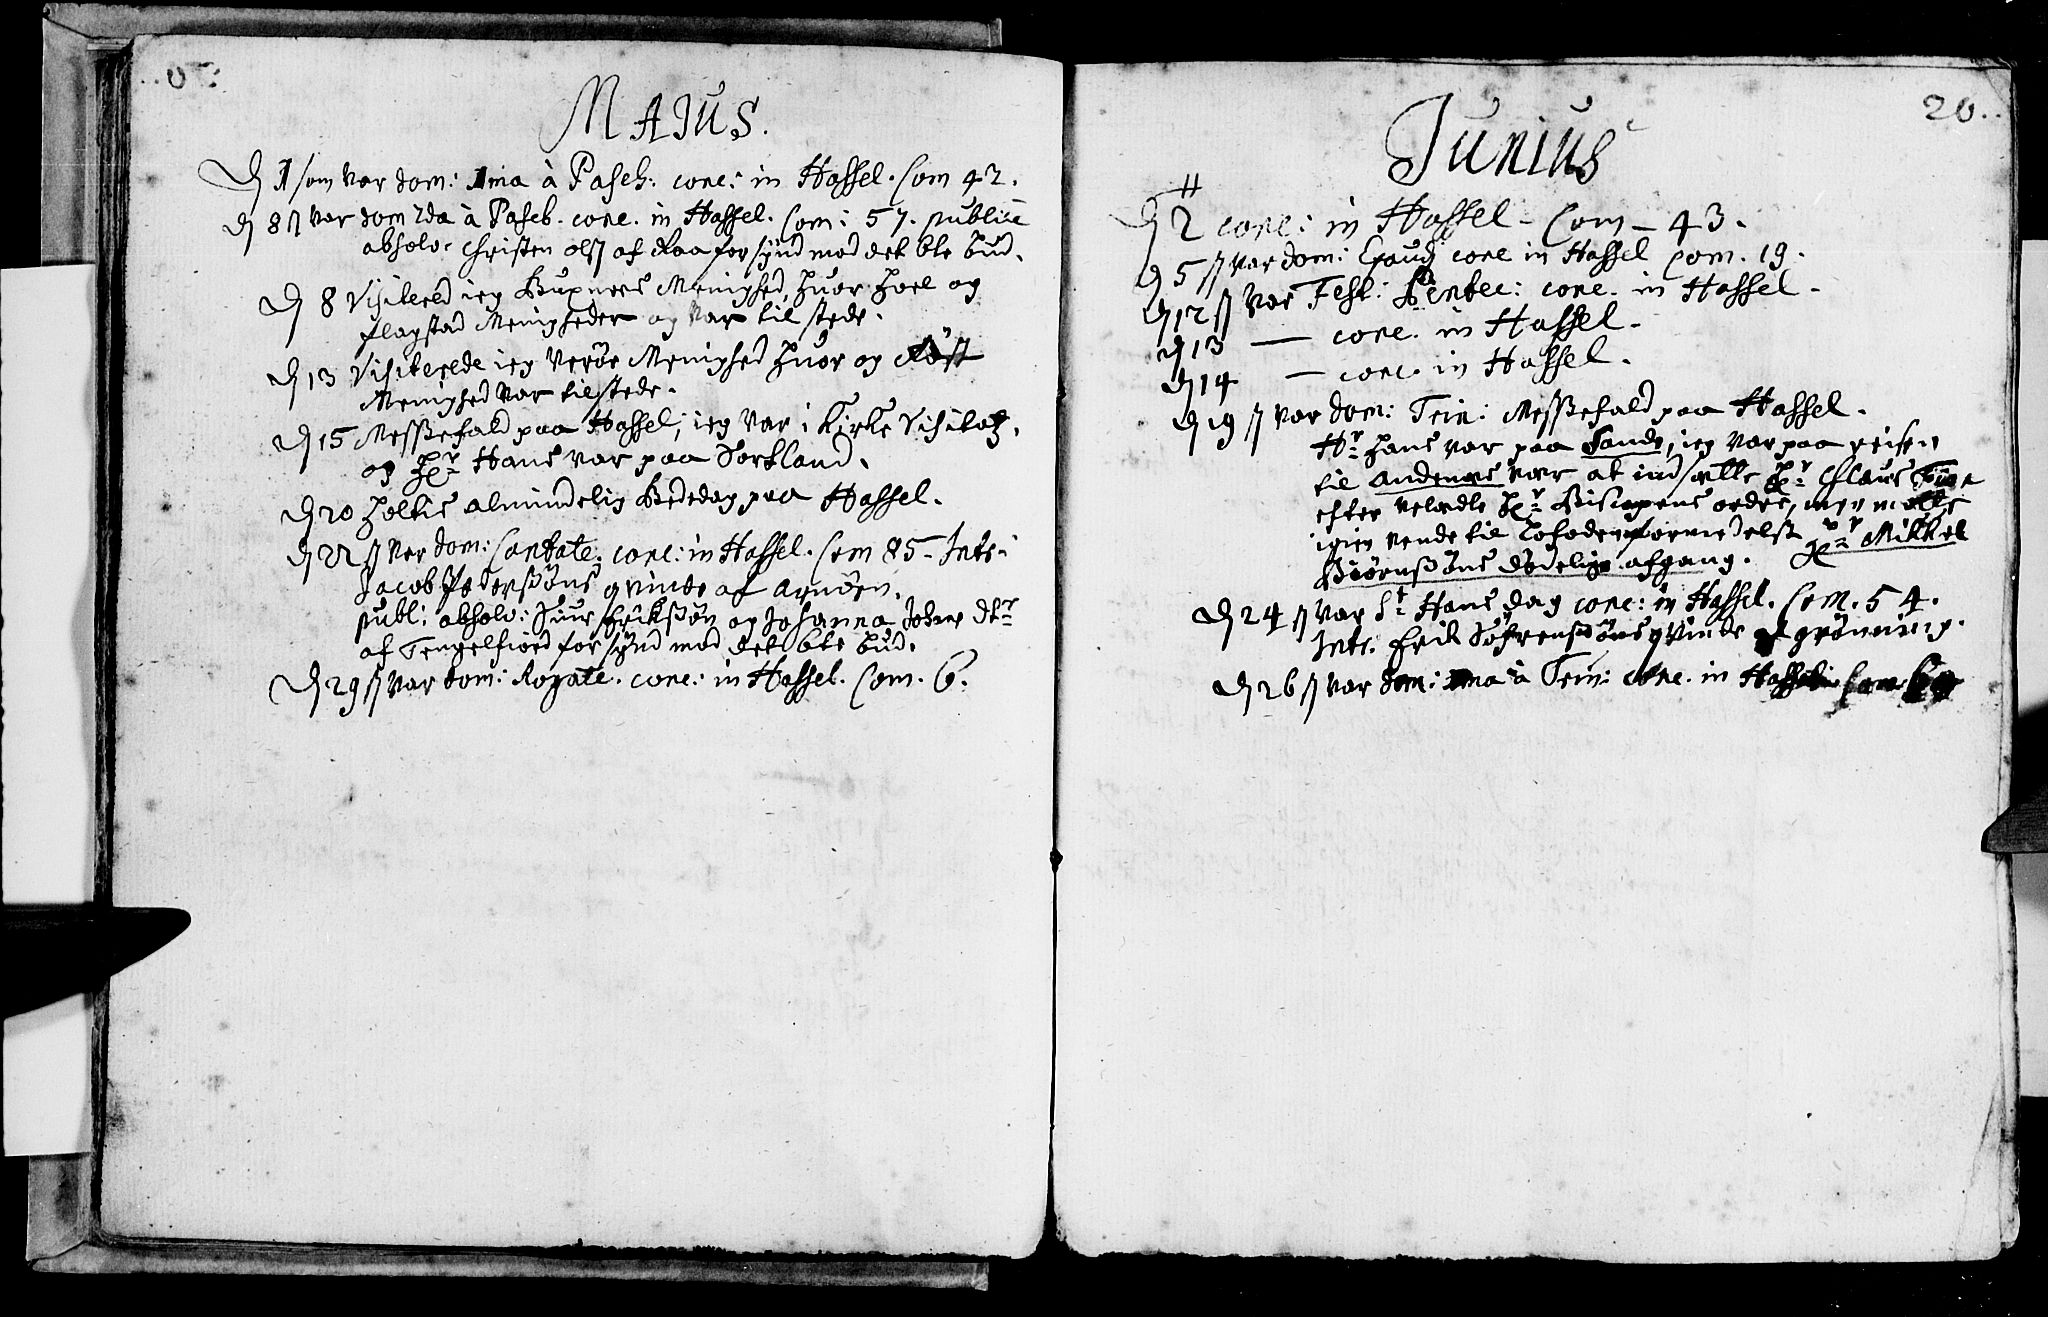 MAIUS.
D 1 som var dom: 1ma à Pasch: conc: in Hassel. Com 42.
D 8 st var dom 2da à Pasch. conc. in Hassel. Com: 57. publicè
absolv. Christen Ols: af Raa for sÿnd mod det 6te bud.
D 8 Visitered ieg Buxnes Menighed, huor Hoel og
flagstad Menigheder og var til stede.
D 13 Visiterede ieg Verøe Menighed huor og Röst
Menighed var tilstede.
D 15 Messefald paa Hassel, ieg var i Kirke Visitatz,
og Hr Hans var paa Sortland.
D 20 holtes almindelig Bededag paa Hassel.
D 22 st var dom: Cantate, conc: in Hassel. Com 85. Intr:
Jacob Pedersøns qvinde af Arnöen.
publ: absolv: Siur Erikssøn og Johanna Johns dtr
af Tengelfiord for sÿnd mod det 6te bud.
D 29 st var dom: Rogate. conc: in Hassel. Com. 6.
20.
Junius
D 2 conc: in Hassel - Com - 43.
D 5 st var dom: Exaudi conc in Hassel com. 19.
D 12 st var Fest: Pentec: conc. in Hassel.
D 13 — conc. in Hassel.
D 14 — conc. in Hassel.
D 19 st var dom: Trin: Messefald paa Hassel.
Hr Hans var paa Sand, ieg var paa reisen
til Andenæs vær at indsætte Hr Claus
efter velædle Hr Biscopens ordre, men motte
igien vende til Lofoden formedelst Hr Mikkel
Biörnssöns dödelige afgang.
D 24 st var St Hans dag conc: in Hassel. Com. 54.
Intr. Erik Söfrenssöns qvinde af grönning.
D 26 st var dom: 1ma à Trin: conc. in Hassel. Com